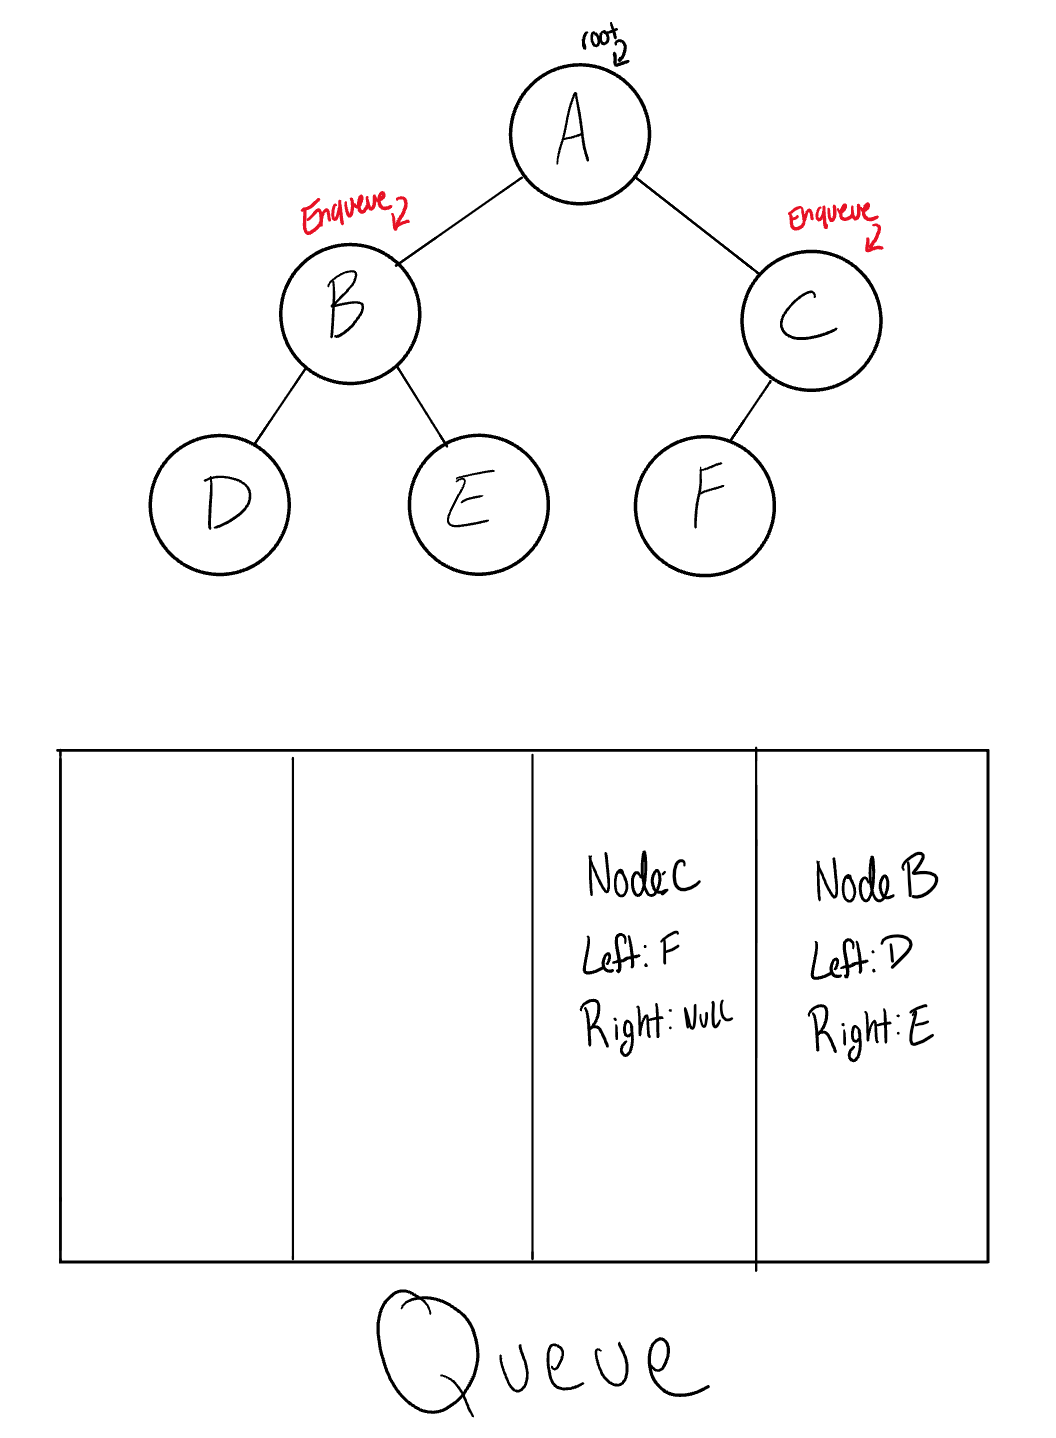 root
A
Enqueue
Enqueue
B
C
D
E
F
Node:C
Left: F
Right: Null
Node B
Left: D
Right: E
Queue